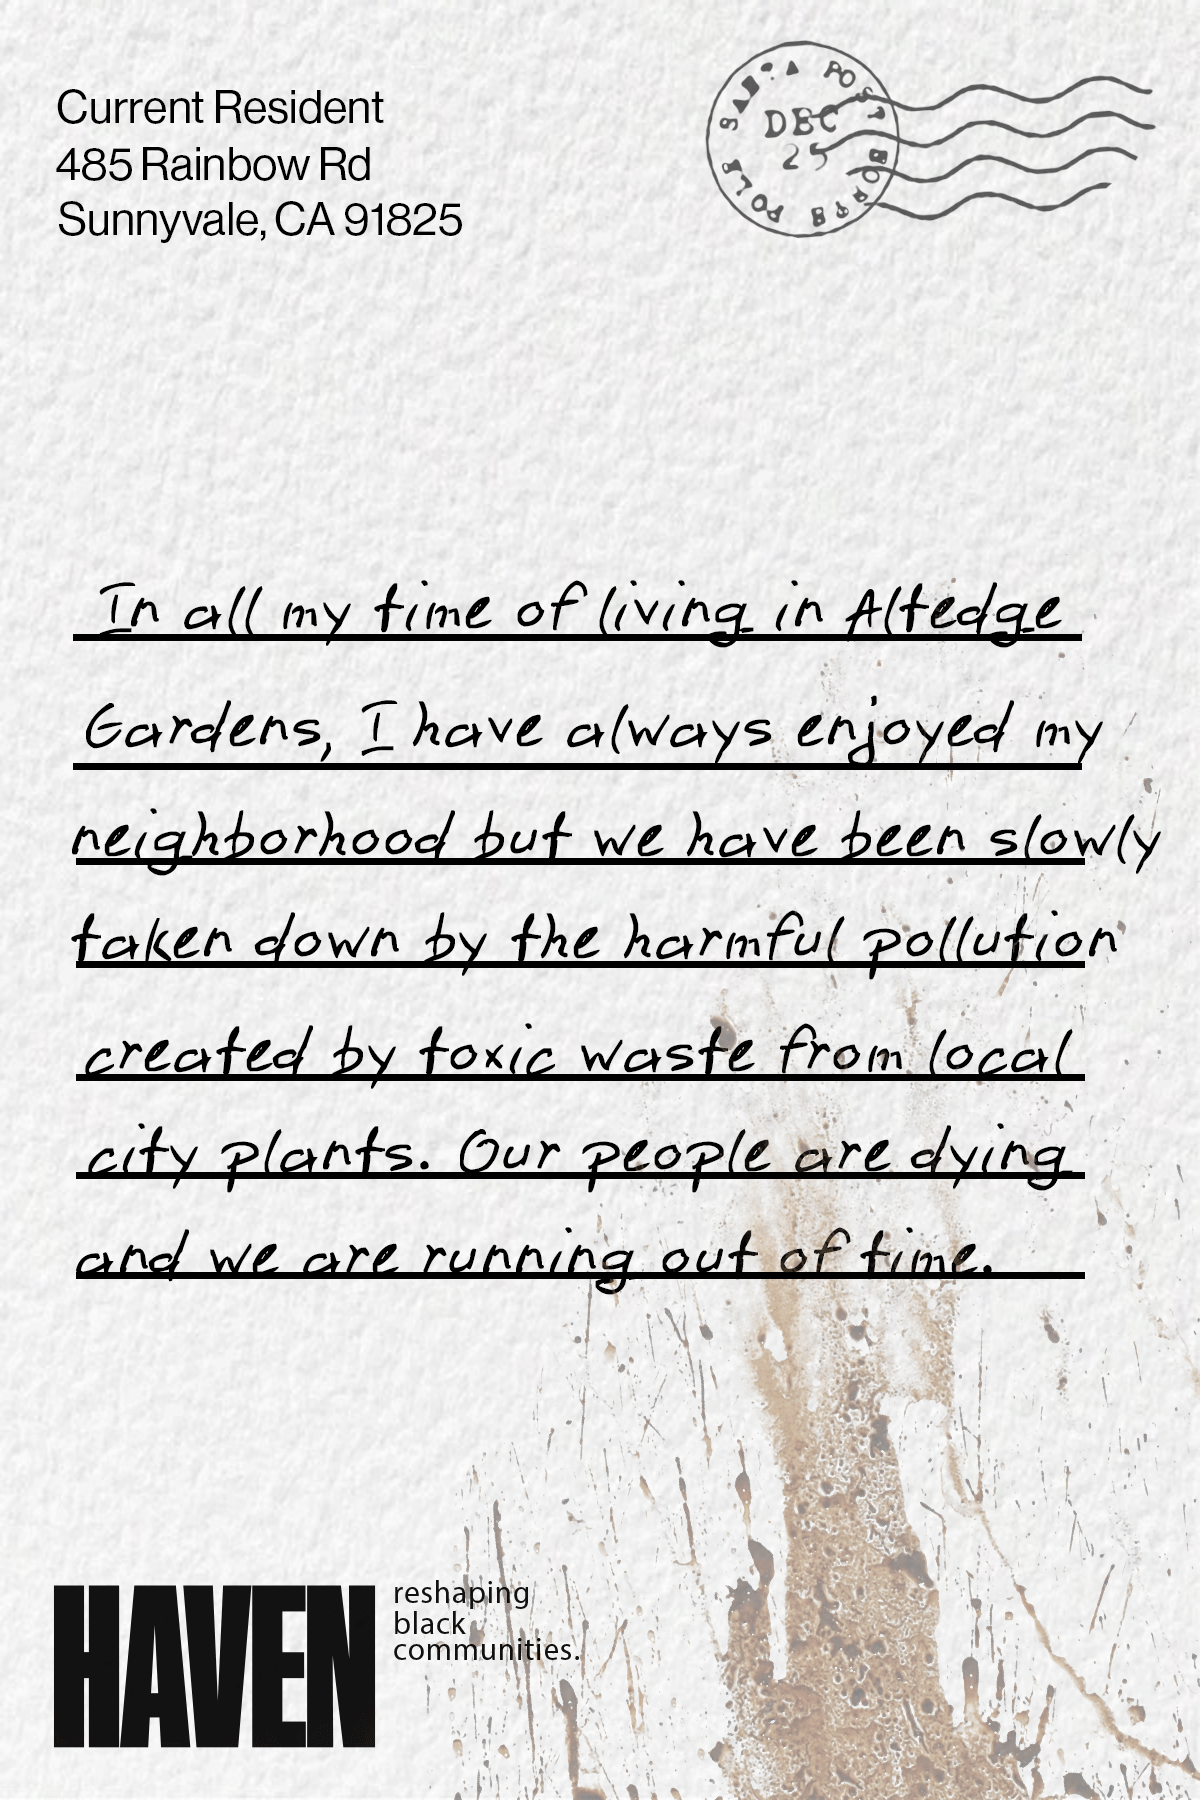 Current Resident
485 Rainbow Rd
Sunnyvale, CA 91825
SANTA POST
DEC
25
POLE
In all my time of living in Altedge
Gardens, I have always enjoyed my
neighborhood but we have been slowly
taken down by the harmful pollution
created by toxic waste from local
city plants. Our people are dying
and we are running out of time.
HAVEN
reshaping
black
communities.